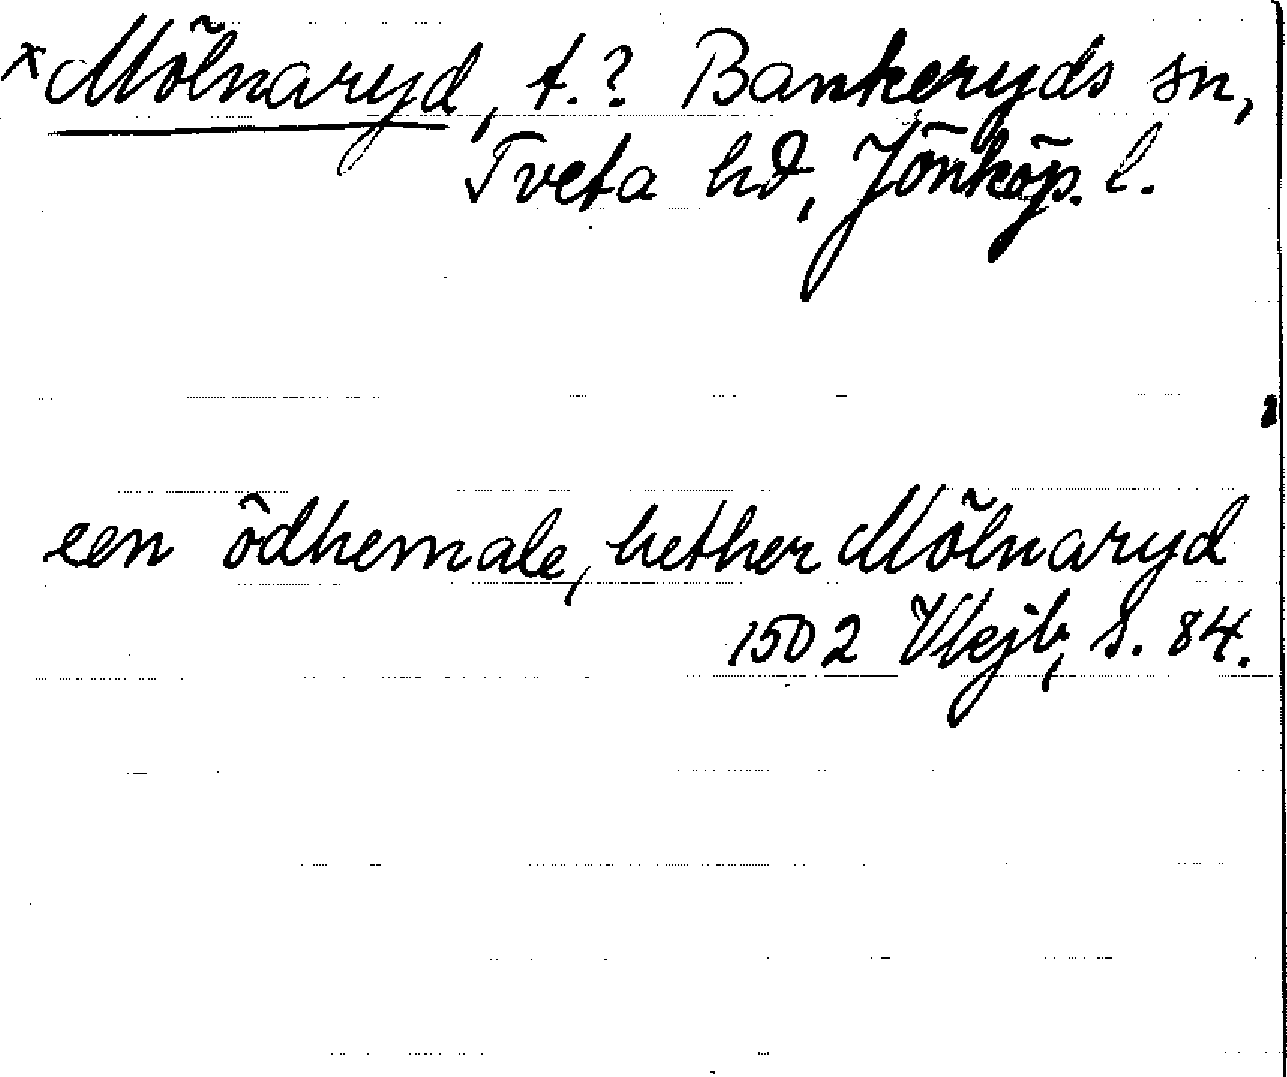 x Mölnaryd, t.? Bankeryds sn,
Tveta hd, Jönköp. l.
een ödhemale, hether Mölnaryd
1502 Vkejb, s. 84.